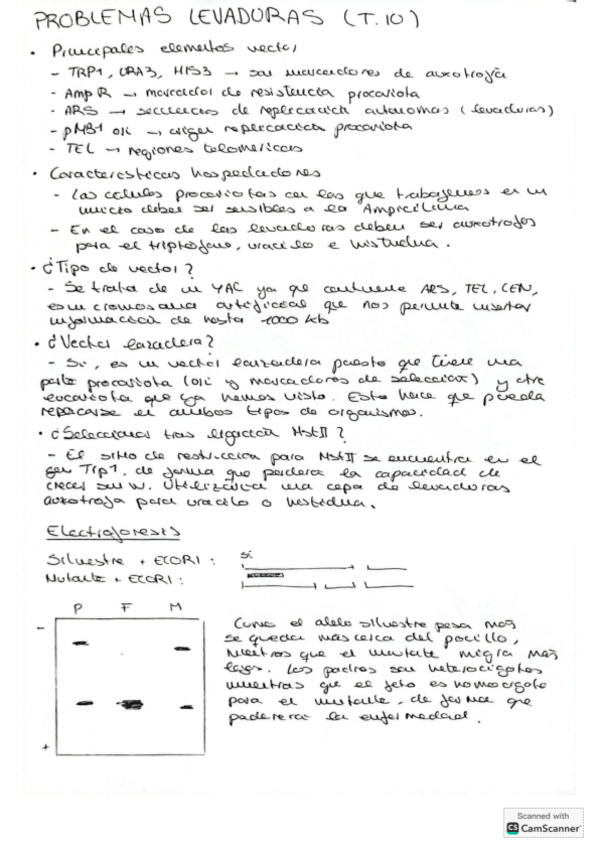 PROBLEMAS LEVADURAS (T.10)
• Principales elementos vector
- TRP1, URA3, HIS3 → son marcadores de auxotrofía
- AmpR → marcador de resistencia procariota
- ARS → secuencias de replicación autónomas (levaduras)
- pMB1 ori → origen replicación procariota
- TEL → regiones teloméricas
• Características hospedadores
- Las células procariotas con las que trabajemos en un
inicio deben ser sensibles a la Ampicilina
- En el caso de las levaduras deben ser auxotrofas
para el triptófano, uracilo e histidina.
• ¿Tipo de vector?
- Se trata de un YAC ya que contiene ARS, TEL, CEN,
es un cromosoma artificial que nos permite insertar
información de hasta 1000 kb
• ¿Vector lanzadera?
- Si, es un vector lanzadera puesto que tiene una
parte procariota (ori y marcadores de selección) y otra
eucariota que ya hemos visto. Esto hace que pueda
replicarse en ambos tipos de organismos.
• ¿Seleccionar tras ligación MstII?
- El sitio de restricción para MstII se encuentra en el
gen Trp1, de forma que perdera la capacidad de
crecer sin W. Utilizaría una cepa de levaduras
auxotrofa para uracilo o histidina.
Electroforesis
Silvestre + ECORI :
Mutante + ECORI :
P F M
-
+
Como el alelo silvestre pesa más
se queda más cerca del pocillo,
mientras que el mutante migra más
lejos. Los padres son heterocigotos
mientras que el feto es homocigoto
para el mutante, de forma que
padecerá la enfermedad.
Scanned with
CS CamScanner